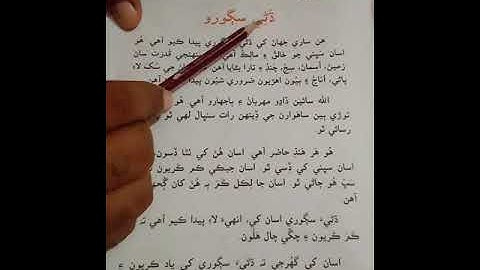 ڌڻي سڳورو
هن ساري جهان کي ڌڻي سڳوري پيدا ڪيو آهي هُو
اسان سڀني جو خالق ۽ مالڪ آهي پنهنجي قدرت سان
زمين، آسمان، سج، چنڊ ۽ تارا بڻايا اٿس جي سُک لاءِ
پاڻي، اناج ۽ ٻيون اهڙيون ضروري شيون پيدا آهن
الله سائين ڏاڍو مهربان ۽ ٻاجهارو آهي هُو
توڙي ٻين ساهوارن جي ڏينهن رات سنڀال لهي ٿو
رسائي ٿو
هُو هر هنڌ حاضر آهي اسان هُن کي نٿا ڏسون
اسان سڀني کي ڏسي ٿو اسان جيڪي ڪم ڪريون
سڀ هو ڄاڻي ٿو اسان جا لڪل ڪم به هُن کان ڳُجهه
آهن
ڌڻيءَ سڳوري اسان کي، انهيءَ لاءِ پيدا ڪيو آهي ته
ڪم ڪريون ۽ چڱي چال هلون
اسان کي گهرجي ته ڌڻيءَ سڳوري کي ياد ڪريون ۽